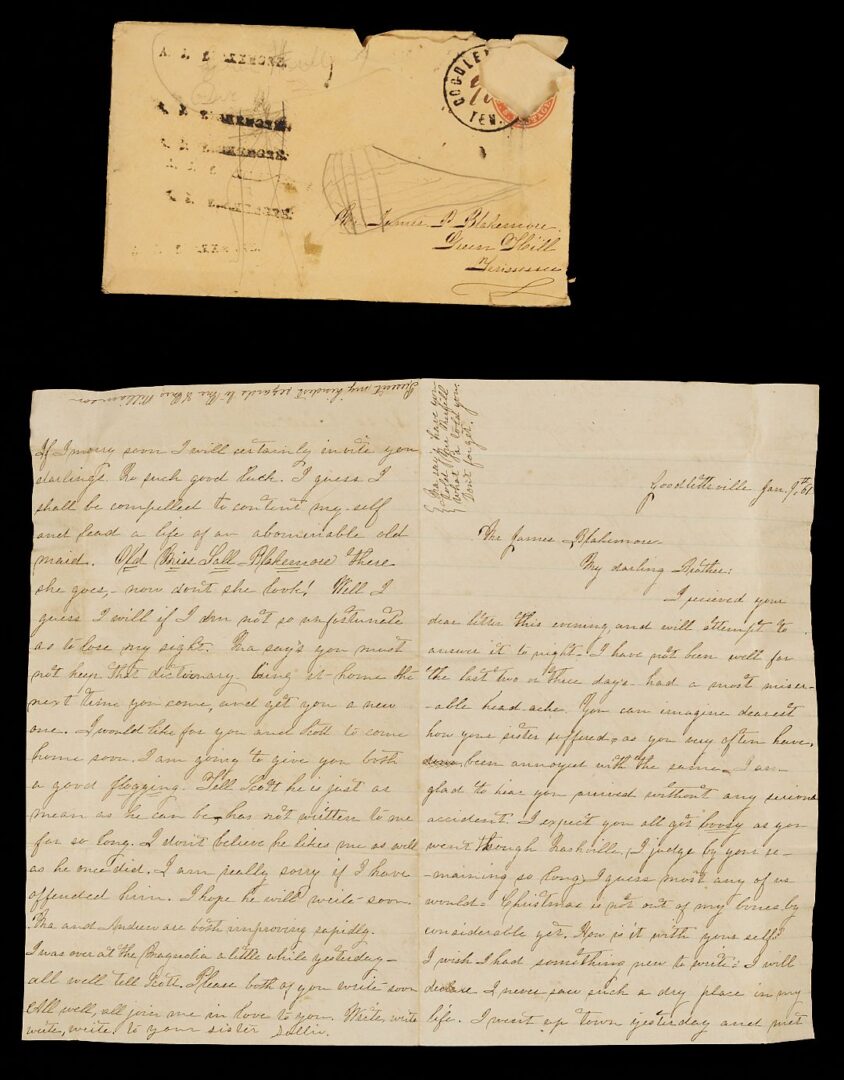 A. J. B
GOODLE
TEN.
Mr James B Blakemore
Green Hill
Tennessee
Goodlettsville Jan. 9th 61
Mr James Blakemore
My darling Brother:
I recieved your
dear letter this evening, and will attempt to
answer it to night. I have not been well for
the last two or three days - had a most miser-
-able head ache. You can imagine dearest
how your sister suffered, as you very often have,
been annoyed with the same. I am
glad to hear you arrived without any serious
accident. I expect you all got boosy as you
went through Nashville, I judge by your re-
-maining so long, I guess most any of us
would. Christmas is not out of my bones by
considerable yet. How is it with yourself?
I wish I had something new to write: I will
declare I never saw such a dry place in my
life. I went up town yesterday and met
Ma says have you
told Mr
what Pa told you.
Don't forget.
Present my kindest regards to Mr & Mrs Williamson
If I marry soon I will certainly invite you
darlings. No such good luck. I guess I
shall be compelled to content my-self
and lead a life of an abominable old
maid. Old Miss Sall Blakemore "there
she goes, - now don't she look! Well I
guess I will if I am not so unfortunate
as to lose my sight. Ma say's you must
not keep that dictionary bring it home the
next time you come, and get you a new
one. I would like for you and Scott to come
home soon. I am going to give you both
a good flogging. Tell Scott he is just as
mean as he can be, has not written to me
for so long. I don't believe he likes me as well
as he once did. I am really sorry if I have
offended him. I hope he will write soon
Ma and Andrew are both improving rapidly.
I was over at the Magnolia a little while yesterday -
all well tell Scott. Please both of you write soon
All well, all join me in love to you. Write, write
write, write. to your sister Sallie